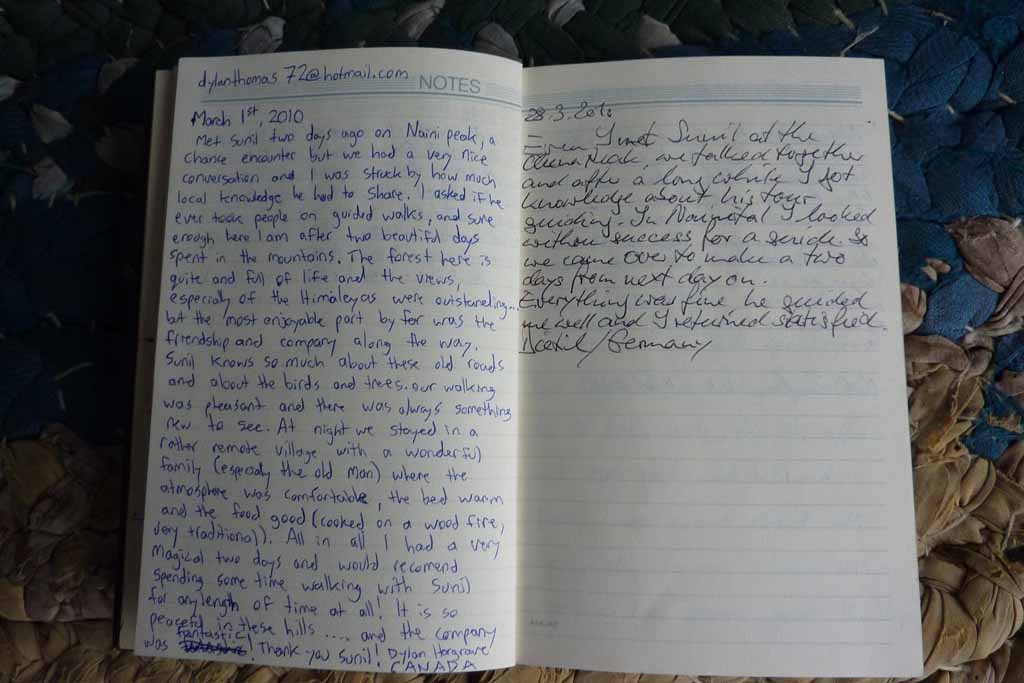 dylanthomas 72@hotmail.com
NOTES
March 1st, 2010
Met Sunil two days ago on Naini peak, a
chance encounter but we had a very nice
conversation and I was struck by how much
local knowledge he had to share. I asked if he
ever took people on guided walks, and sure
enough here I am after two beautiful days
spent in the mountains. The forest here is
quite and full of life and the views,
especially of the Himalayas were outstanding...
but the most enjoyable part by far was the
friendship and company along the way.
Sunil knows so much about these old roads
and about the birds and trees. our walking
was pleasant and there was always something
new to see. At night we stayed in a
rather remote village with a wonderful
family (especially the old man) where the
atmosphere was comfortable, the bed warm
and the food good (cooked on a wood fire,
very traditional). All in all I had a very
magical two days and would recomend
spending some time walking with Sunil
for any length of time at all! It is so
peaceful in these hills .... and the company
was fantastic! Thank you Sunil! Dylan Hargrave
CANADA
28.3.2010
I met Sunil at the
Peak, we talked together
and after a long while I got
knowledge about his tour
guiding. In Nainital I looked
without success for a guide. So
we came over to make a two
days from next day on.
Everything was fine he guided
me well and I returned satisfied.
/Germany